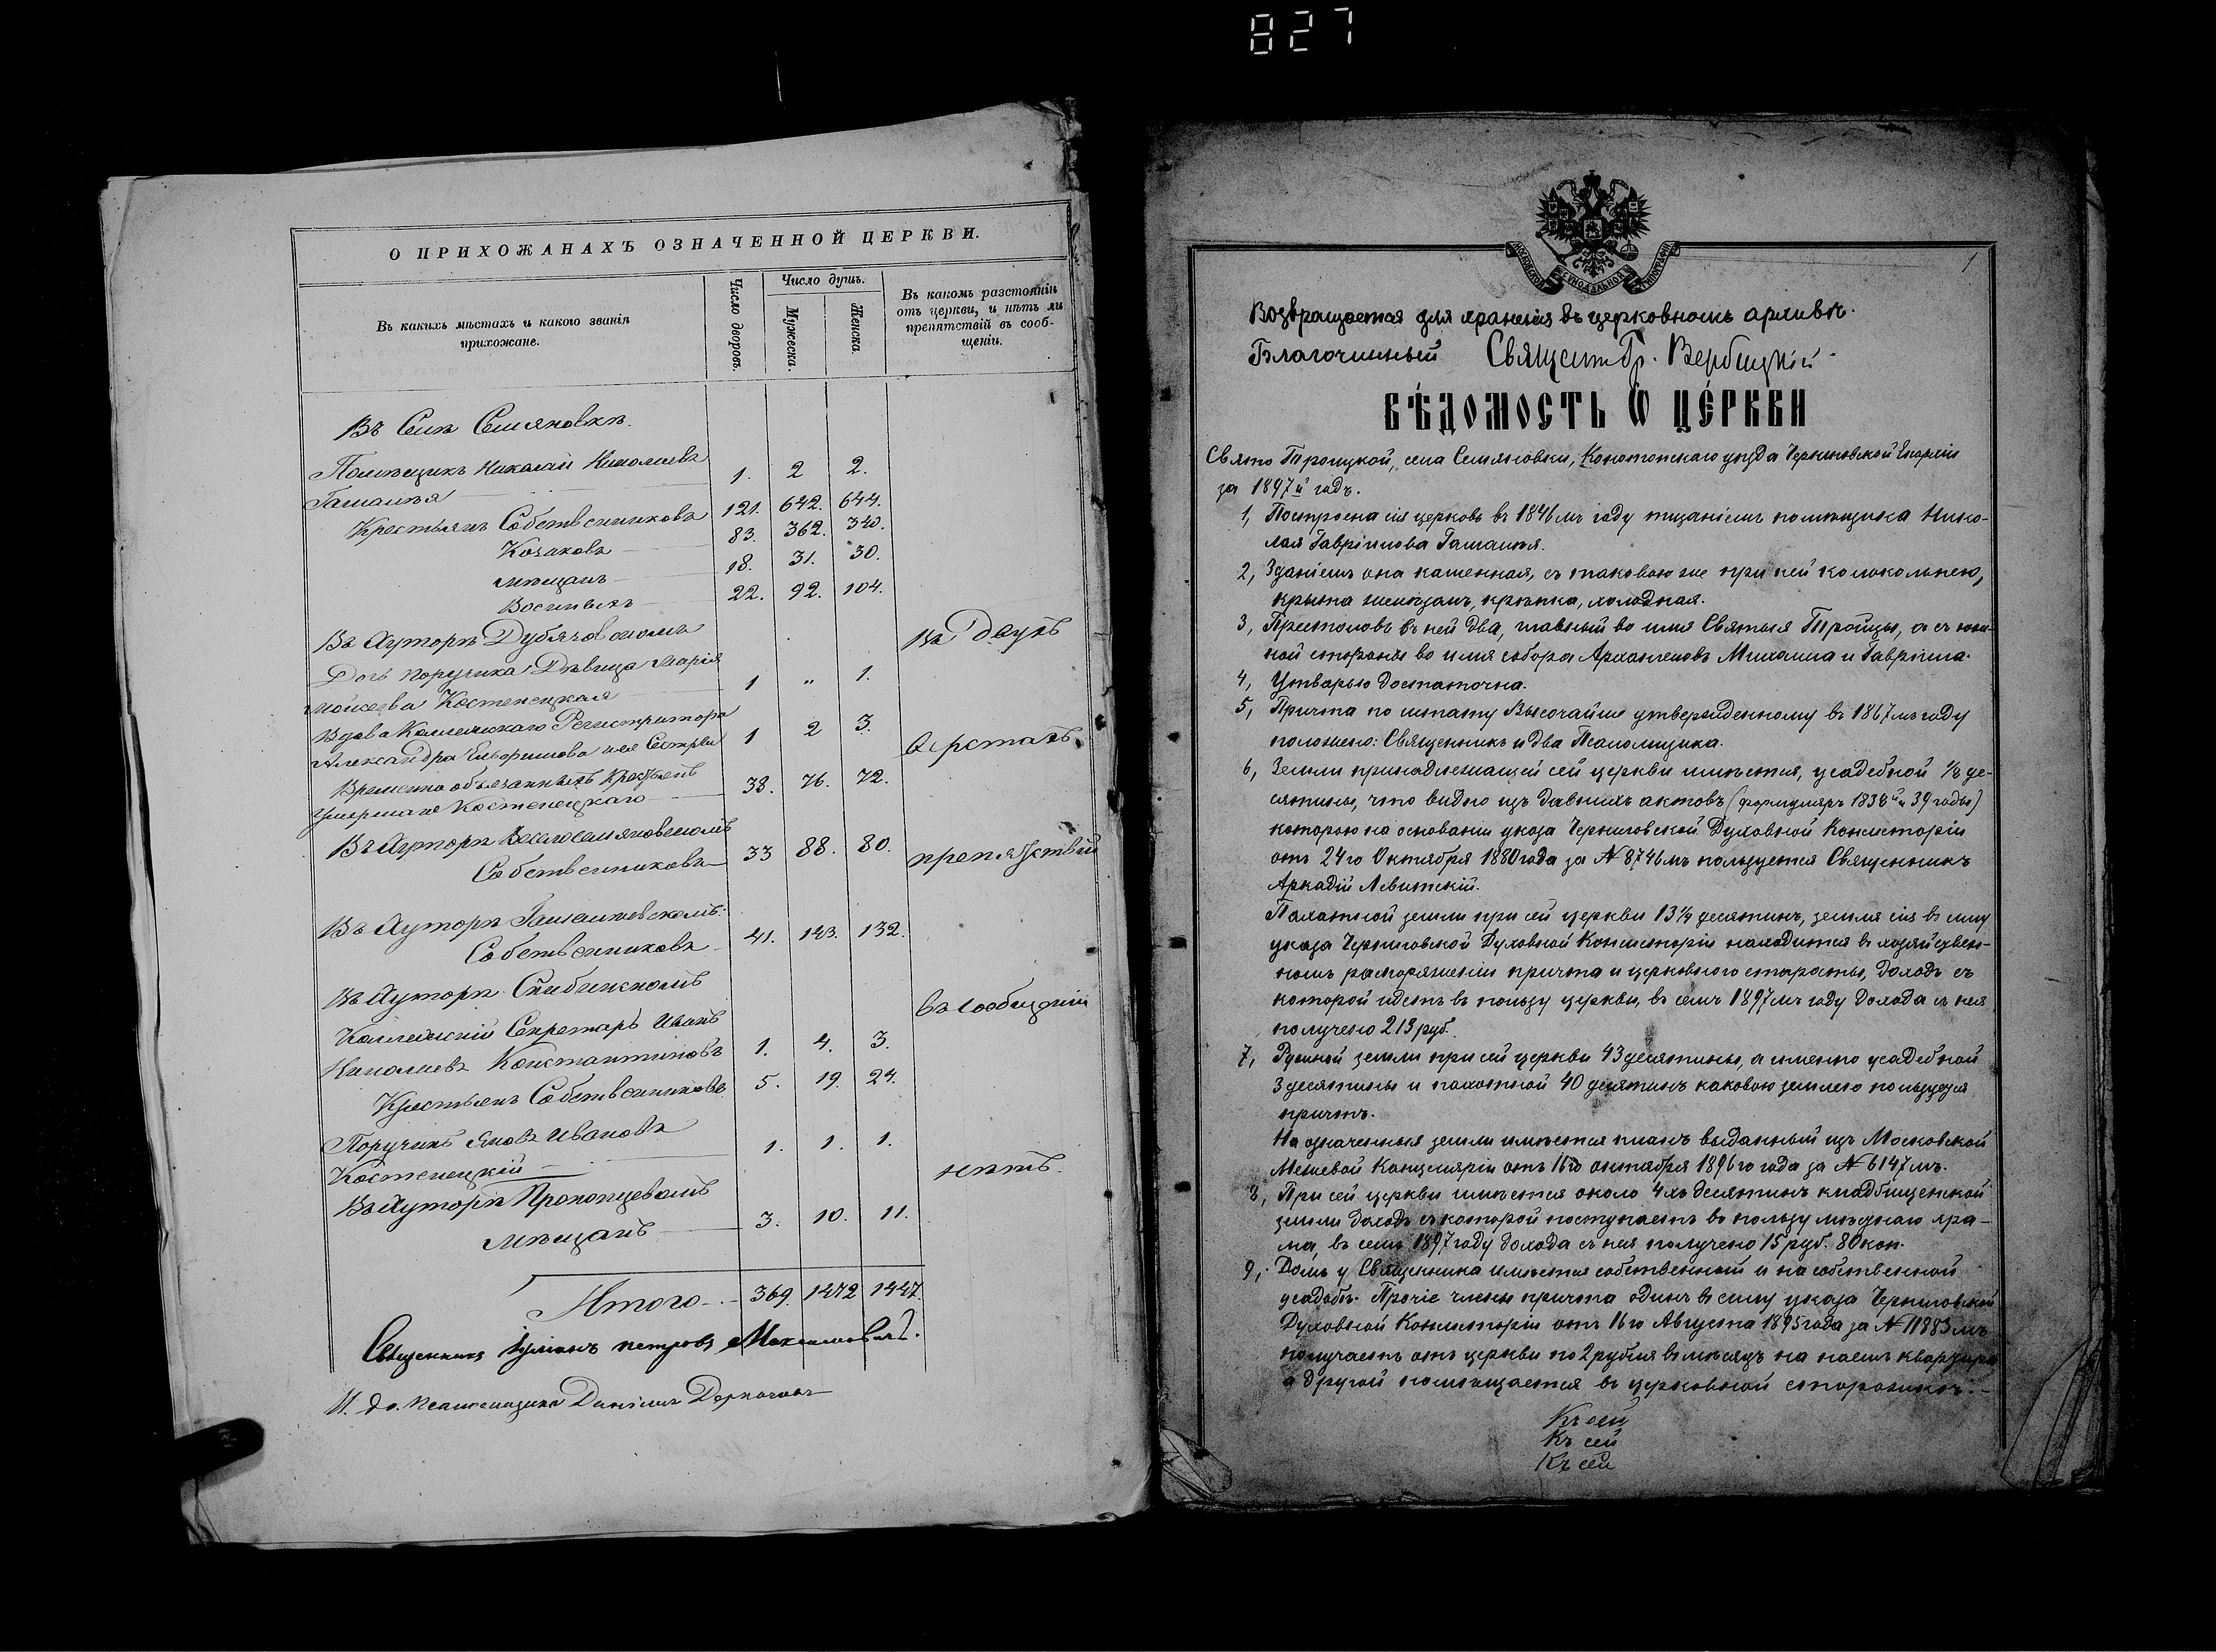 827
О ПРИХОЖАНАХЪ ОЗНАЧЕННОЙ ЦЕРКВИ.
Въ какихъ мѣстахъ и какого званія
прихожане.
Число дворовъ.
Число душъ.
Мужеска.
Женска.
Въ какомъ разстояніи
отъ церкви, и нѣтъ ли
препятствій въ сооб-
щеніи.
Въ Селѣ Семяновкѣ.
Помѣщикъ Николай Николаевъ
Гамалѣя 1. 2 2.
Крестьянъ Собственниковъ 121. 642. 644.
Козаковъ 83. 362. 340.
Мѣщанъ 18. 31. 30.
Военныхъ 22. 92. 104.
Въ Хуторѣ Дубячовскомъ Въ Двухъ
Дочь поручика Дѣвица Марія
Моисеева Костенецкая 1 " 1.
Вдова Коллежскаго Регистратора
Александра 1 2 3. верстахъ
Временно обязанныхъ Крестьянъ
умершаго Костенецкаго 38. 76. 72.
Въ Хуторѣ
Собственниковъ 33 88. 80. препятствій
Въ Хуторѣ Гамалѣевскомъ:
Собственниковъ 41. 143. 132.
Въ Хуторѣ
Коллежскій Секретарь Иванъ въ сообщеніи
Николаевъ Константиновъ 1. 4. 3.
Крестьянъ Собственниковъ 5. 19. 24.
Поручикъ Яковъ Ивановъ
Костенецкій 1. 1. 1. нѣтъ.
Въ Хуторѣ Прокопцевомъ
Мѣщанъ 3. 10. 11.
Итого 369. 1472 1447.
Священникъ Іуліанъ Петровъ Максимовичъ.
И. до. Псаломщика Даніилъ
МОСКОВСКОЙ СУНОДАЛЬНОЙ ТИПОГРАФІИ
1
Возвращается для храненія въ церковномъ архивѣ.
Благочинный Священ. Гр. Вербицкій
ВѢДОМОСТЬ Ѡ ЦЕРКВИ
Свято Троицкой, села Семяновки, Конотопскаго уѣзда Черниговской Епархіи
за 1897й годъ.
1, Построена сія церковь въ 1846мъ году тщаніемъ помѣщика Нико-
лая Гавріилова Гамалѣя.
2, Зданіемъ она каменная, съ таковою же при ней колокольнею,
крыта желѣзомъ, крѣпка, холодная.
3, Престоловъ въ ней два, главный во имя Святыя Тройцы, а съ юж-
ной стороны во имя собора Архангеловъ Михаила и Гавріила.
4, Утварью достаточна.
5, Причта по штату Высочайше утвержденному въ 1867мъ году
положено: Священникъ и два Псаломщика.
6, Земли принадлежащей сей церкви имѣется, усадебной 1/8 де-
сятины, что видно изъ давнихъ актовъ (формуляръ 1838й и 39 годы)
которою на основаніи указа Черниговской Духовной Консисторіи
отъ 24го Октября 1880 года за № 8746мъ пользуется Священникъ
Аркадій Левитскій.
Пахатной земли при сей церкви 13 1/4 десятинъ, земля сія въ силу
указа Черниговской Духовной Консисторіи находится въ хозяйствен-
номъ распоряженіи причта и церковнаго старосты, доходъ съ
которой идетъ въ пользу церкви, въ семъ 1897мъ году дохода съ нея
получено 213 руб.
7, Ружной земли при сей церкви 43 десятины, а именно усадебной
3 десятины и пахотной 40 десятинъ каковою землею пользуется
причтъ.
На означенныя земли имѣется планъ выданный изъ Московской
Межевой Канцеляріи отъ 16го октября 1896го года за № 6147мъ.
8, При сей церкви имѣется около 4хъ десятинъ кладбищенской
земли доходъ съ которой поступаетъ въ пользу мѣстнаго хра-
ма, въ семъ 1897 году дохода съ нея получено 15 руб. 80 коп.
9, Домъ у Священника имѣется собственный и на собственной
усадьбѣ. Прочіе члены причта одинъ въ силу указа Черниговской
Духовной Консисторіи отъ 16го Августа 1895 года за № 11883мъ
получаетъ отъ церкви по 2 рубля въ мѣсяцъ на наемъ квартиры
а другой помѣщается въ церковной сторожкѣ.
Къ сей
Къ сей
Къ сей